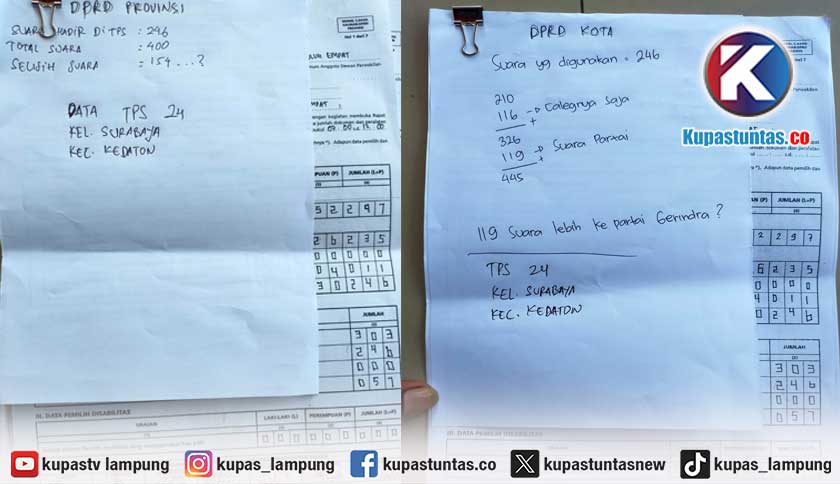 DPRD PROVINSI
SUARA HADIR DITPS : 246
TOTAL SUARA : 400
SELISIH SUARA : 154...?
DATA TPS 24
KEL. SURABAYA
KEC. KEDATON
Hal 1 dari 7
EMPAT
JUMLAH (L+P)
5 2 2 9 7
2 6 2 3 5
0 0 0 0 0
0 4 0 1 1
3 0 2 4 6
JUMLAH
3 0 3
2 4 6
0 0 0
0 5 7
III. DATA PEMILIH DISABILITAS
URAIAN
LAKI-LAKI (L) PEREMPUAN (P) JUMLAH (L+P)
DPRD KOTA
Suara yg digunakan = 246
210
116 → Calegnya saja
+
326
119 → Suara Partai
+
445
119 Suara lebih ke partai Gerindra?
TPS 24
KEL. SURABAYA
KEC. KEDATON
K
Kupastuntas.co
JUMLAH (L+P)
2 2 9 7
6 2 3 5
0 0 0 0
4 0 1 1
0 2 4 6
JUMLAH
3 0 3
2 4 6
0 0 0
0 5 7
kupastv lampung
kupas_lampung
kupastuntas.co
kupastuntasnew
kupas_lampung